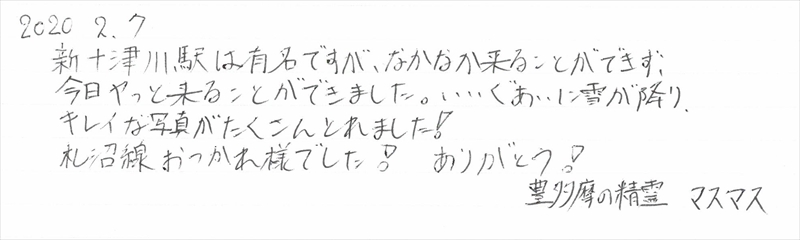 2020 2.7
新十津川駅は有名ですが、なかなか来ることができず、
今日やっと来ることができました。いいぐあいに雪が降り、
キレイな写真がたくさんとれました!
札沼線おつかれ様でした! ありがとう!
豊多摩の精霊 マスマス